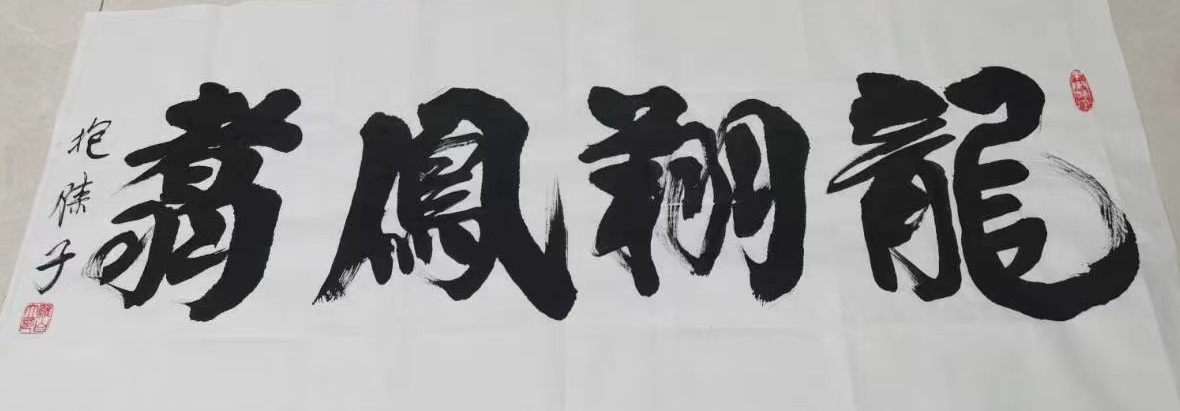 龍翔鳳翥
抱愫子